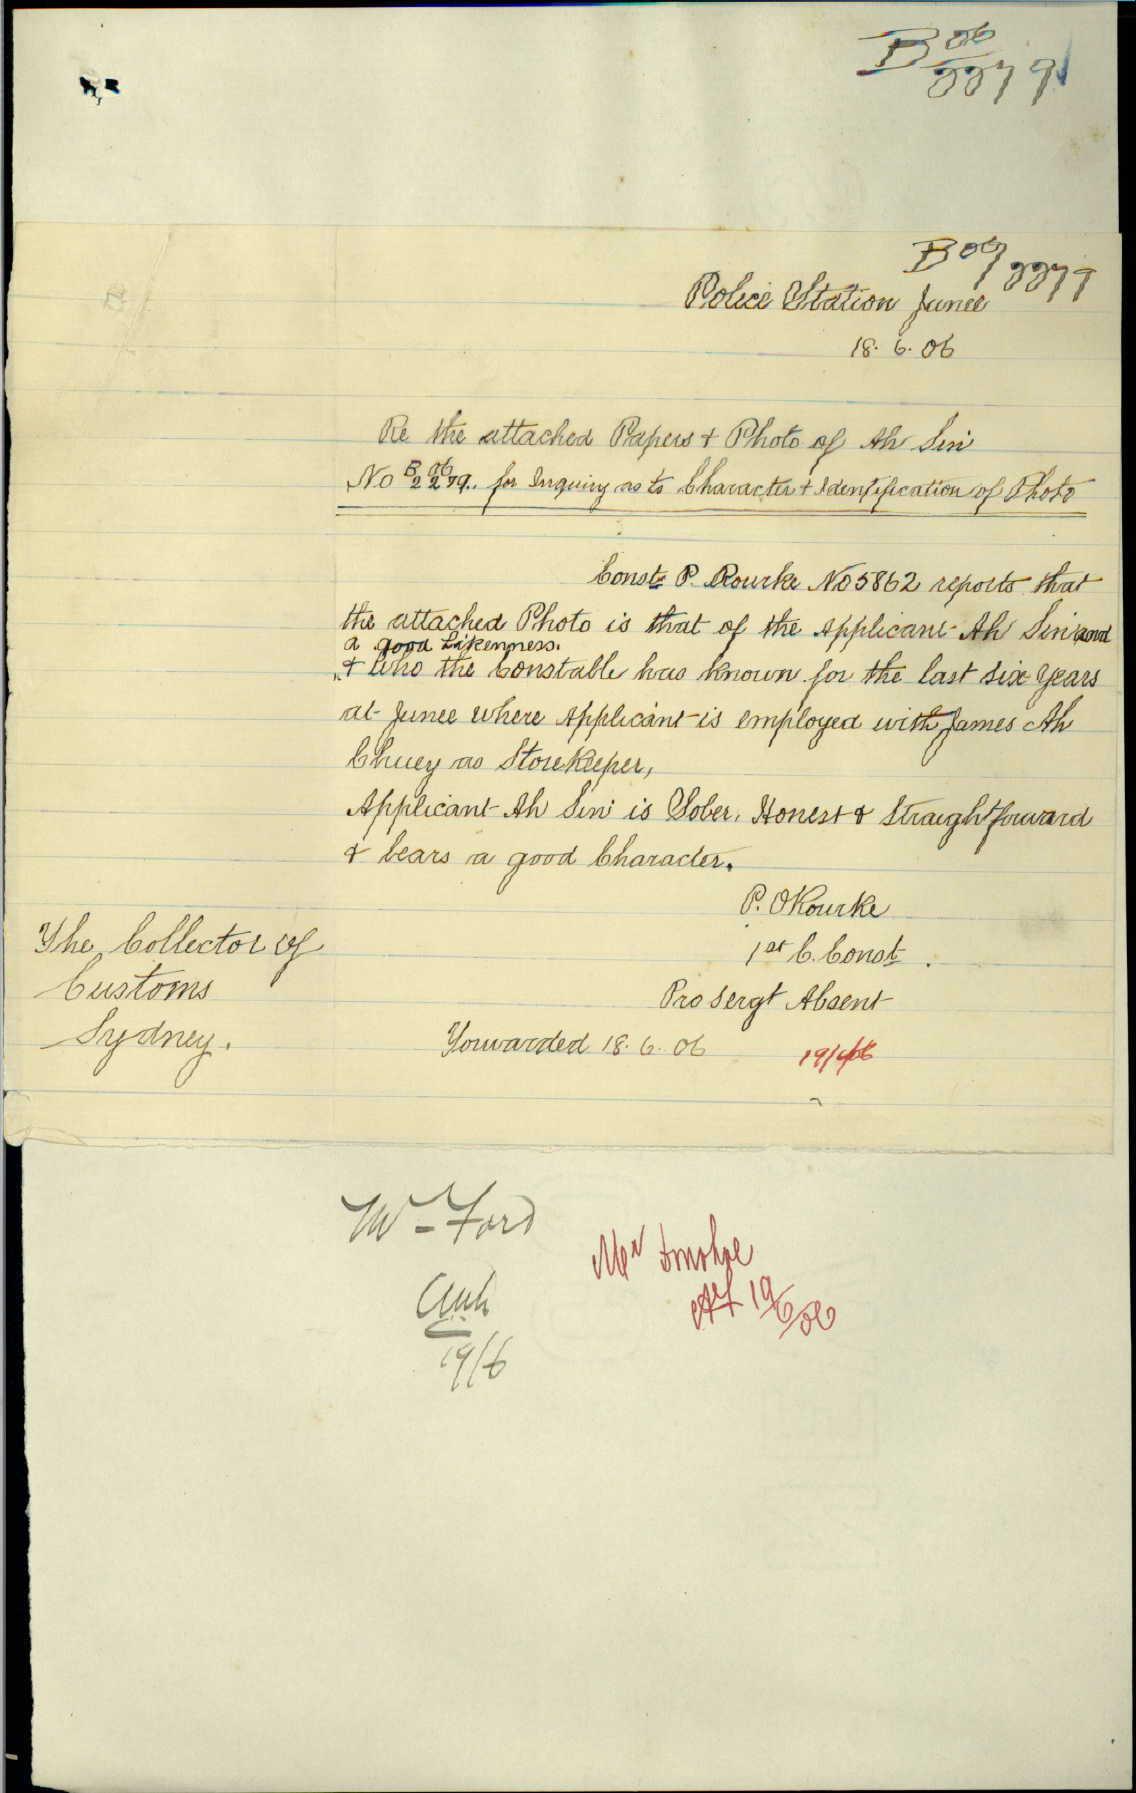 B 06
2279
B 06/2279
Police Station Junee
18. 6. 06
Re the attached Papers & Photo of Ah Sin
No B 06 2279. for Inquiry as to Character & Identification of Photo
Const. P. Rourke No 5862 reports that
the attached Photo is that of the Applicant Ah Sin and
a good Likenness.
& who the Constable has known for the last six years
at Junee where Applicant is employed with James Ah
Chuey as Storekeeper,
Applicant Ah Sin is Sober, Honest & Straightforward
& bears a good Character.
P. O'Rourke
1st C. Const.
Pro Sergt Absent
The Collector of
Customs
Sydney.
Forwarded 18. 6. 06
19/6/06
Mr Ford
19/6
Mr Donohoe
19/6/06